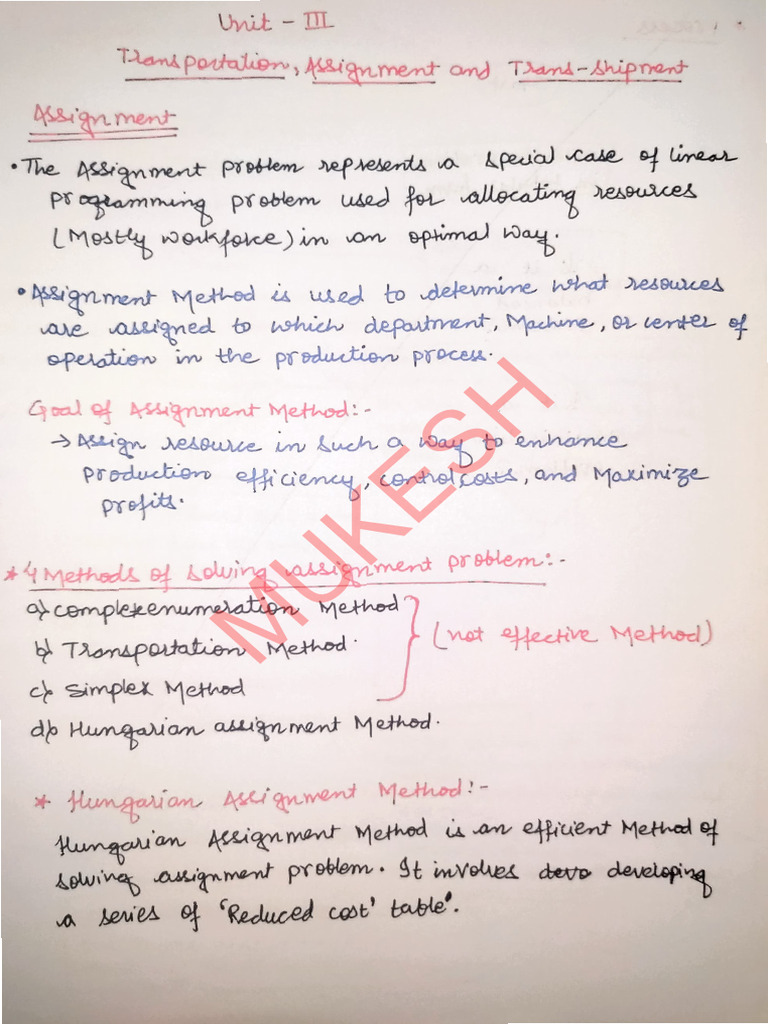 Unit - III
Transportation, Assignment and Trans-shipment
Assignment
• The Assignment problem represents a special case of linear
programming problem used for allocating resources
(Mostly workforce) in an optimal way.
• Assignment Method is used to determine what resources
are assigned to which department, Machine, or center of
operation in the production process.
Goal of Assignment Method:-
→ Assign resource in such a way to enhance
production efficiency, control costs, and Maximize
profits.
* 4 Methods of solving assignment problem:-
a) complexenumeration Method
b) Transportation Method.
(not effective Method)
c) Simplex Method
d) Hungarian assignment Method.
* Hungarian Assignment Method:-
Hungarian Assignment Method is an efficient Method of
solving assignment problem. It involves devo developing
a series of 'Reduced cost' table'.
MUKESH